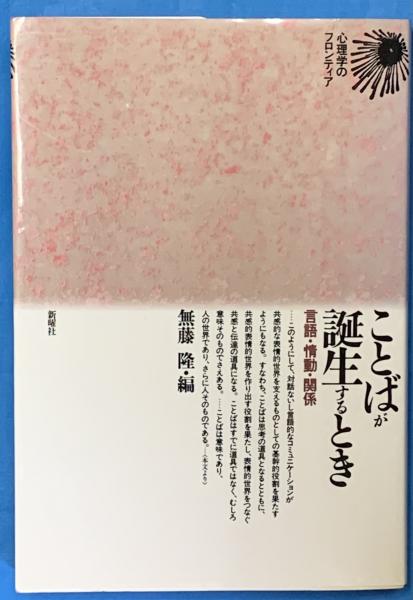 心理学の
フロンティア
ことばが
誕生するとき
言語・情動・関係
……このようにして、対話ないし言語的なコミュニケーションが
共感的な表情的世界を支えるものとしての基幹的役割を果たす
ようにもなる。すなわち、ことばは思考の道具となるとともに、
共感的表情的世界を作り出す役割を果たし、表情的世界をつなぐ
共感と伝達の道具になる。ことばはすでに道具ではなく、むしろ
意味そのものでさえある。……ことばは意味であり、
人の世界であり、さらに人そのものである。―〈本文より〉
無藤 隆・編
新曜社